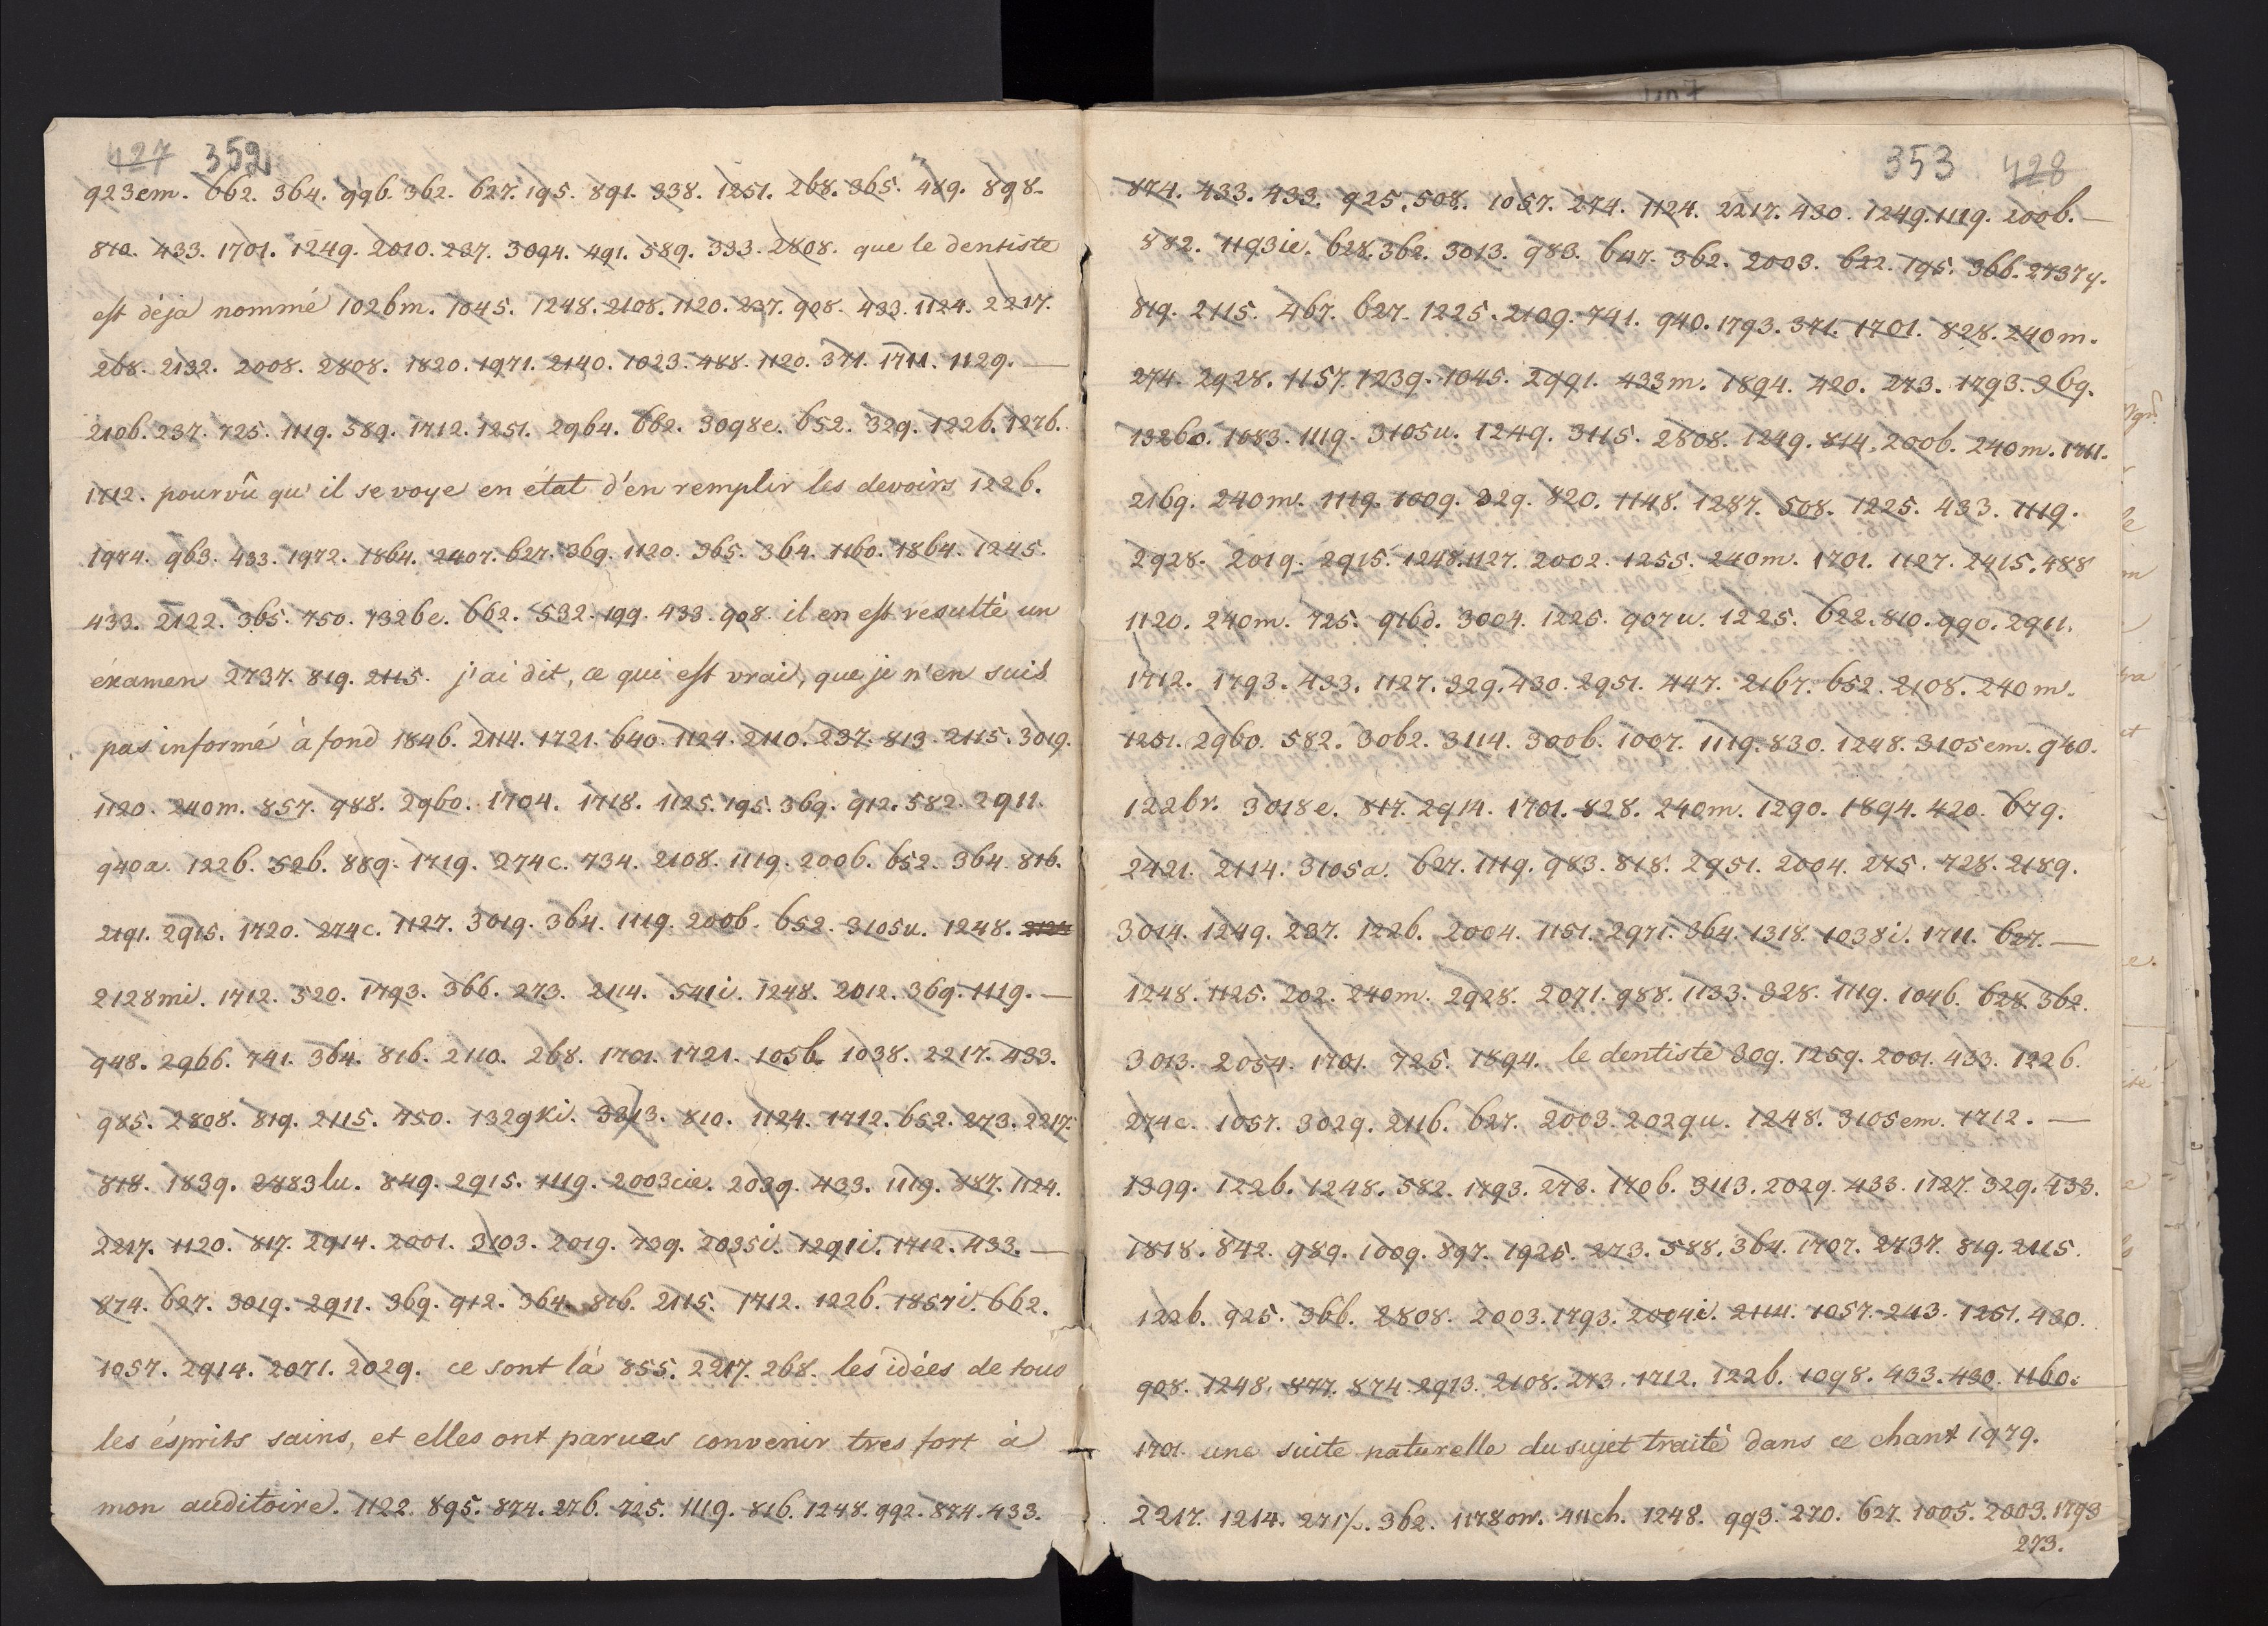 427 352
923em. 662. 364. 996. 362. 627. 195. 891. 338. 1251. 268. 365. 489. 898.
810. 433. 1701. 1249. 2010. 237. 3094. 491. 589. 333. 2808. que le dentiste
est déja nommé 1026m. 1045. 1248. 2108. 1120. 237. 908. 433. 1124. 2217.
268. 2132. 2008. 2808. 1820. 1971. 2140. 1023. 488. 1120. 371. 1711. 1129. —
2106. 237. 725. 1119. 589. 1712. 1251. 2964. 662. 3098e. 652. 329. 1226. 1276.
1712. pourvû qu'il se voye en état d'en remplir les devoirs 1226.
1974. 963. 433. 1972. 1864. 2407. 627. 369. 1120. 365. 364. 1160. 1864. 1245.
433. 2122. 365. 750. 1326e. 662. 532. 199. 433. 908. il en est resulté un
éxamen 2737. 819. 2115. j'ai dit, ce qui est vrai, que je n'en suis
pas informé à fond 1846. 2114. 1721. 640. 1124. 2110. 237. 813. 2115. 3019.
1120. 240m. 857. 988. 2960. 1704. 1718. 1125. 195. 369. 912. 582. 2911.
940a. 1226. 526. 889. 1719. 274c. 734. 2108. 1119. 2006. 652. 364. 816.
2191. 2915. 1720. 274c. 1127. 3019. 364. 1119. 2006. 652. 3105u. 1248.
2128mi. 1712. 520. 1793. 366. 273. 2114. 541i. 1248. 2012. 369. 1119. —
948. 2966. 741. 364. 816. 2110. 268. 1701. 1721. 1056. 1038. 2217. 433.
985. 2808. 819. 2115. 750. 1329ki. 3313. 810. 1124. 1712. 652. 273. 2217.
818. 1839. 2883lu. 849. 2915. 1119. 2003cie. 2039. 433. 1119. 887. 1124.
2217. 1120. 817. 2914. 2001. 3103. 2019. 739. 2035i. 1291i. 1712. 433. —
874. 627. 3019. 2911. 369. 912. 364. 816. 2115. 1712. 1226. 1857i. 662.
1057. 2914. 2071. 2029. ce sont là 855. 2217. 268. les idées de tous
les ésprits sains, et elles ont parues convenir tres fort à
mon auditoire. 1122. 895. 874. 276. 725. 1119. 816. 1248. 992. 874. 433.
353 428
874. 433. 433. 925. 508. 1057. 274. 1124. 2217. 430. 1249. 1119. 2006. —
882. 1193ie. 628. 362. 3013. 983. 647. 362. 2003. 622. 195. 366. 2737y.
819. 2115. 467. 627. 1225. 2109. 741. 940. 1793. 371. 1701. 828. 240m.
274. 2928. 1157. 1239. 1045. 2991. 433m. 1894. 420. 273. 1793. 369.
1326o. 1083. 1119. 3105u. 1249. 3115. 2808. 1249. 814. 2006. 240m. 1711.
2169. 240m. 1119. 1009. 329. 820. 1148. 1287. 508. 1225. 433. 1119.
2928. 2019. 2915. 1248. 1127. 2002. 1255. 240m. 1701. 1127. 2415. 488
1120. 240m. 725. 916d. 3004. 1225. 907u. 1225. 622. 810. 990. 2911.
1712. 1793. 433. 1127. 329. 430. 2951. 447. 2167. 652. 2108. 240m.
1251. 2960. 582. 3062. 3114. 3006. 1007. 1119. 830. 1248. 3105em. 940.
1226r. 3018e. 817. 2914. 1701. 828. 240m. 1290. 1894. 420. 679.
2421. 2114. 3105a. 627. 1119. 983. 818. 2951. 2004. 275. 728. 2189.
3014. 1249. 237. 1226. 2004. 1151. 2971. 364. 1318. 1038i. 1711. 627. —
1248. 1125. 202. 240m. 2928. 2071. 988. 1133. 328. 1119. 1046. 628. 362.
3013. 2054. 1701. 725. 1894. le dentiste 309. 1259. 2001. 433. 1226.
274c. 1057. 3029. 2116. 627. 2003. 202qu. 1248. 3105em. 1712. —
1399. 1226. 1248. 582. 1793. 273. 1706. 3113. 2029. 433. 1127. 329. 433.
1818. 842. 989. 1009. 897. 1925. 273. 588. 364. 1707. 2737. 819. 2115.
1226. 925. 366. 2808. 2003. 1793. 2004i. 2114. 1057. 243. 1251. 430.
908. 1248. 877. 874. 2913. 2108. 273. 1712. 1226. 1098. 433. 430. 1160.
1701. une suite naturelle du sujet traité dans ce chant 1979.
2217. 1214. 271p. 362. 1178on. 411ch. 1248. 993. 270. 627. 1005. 2003. 1793
273.